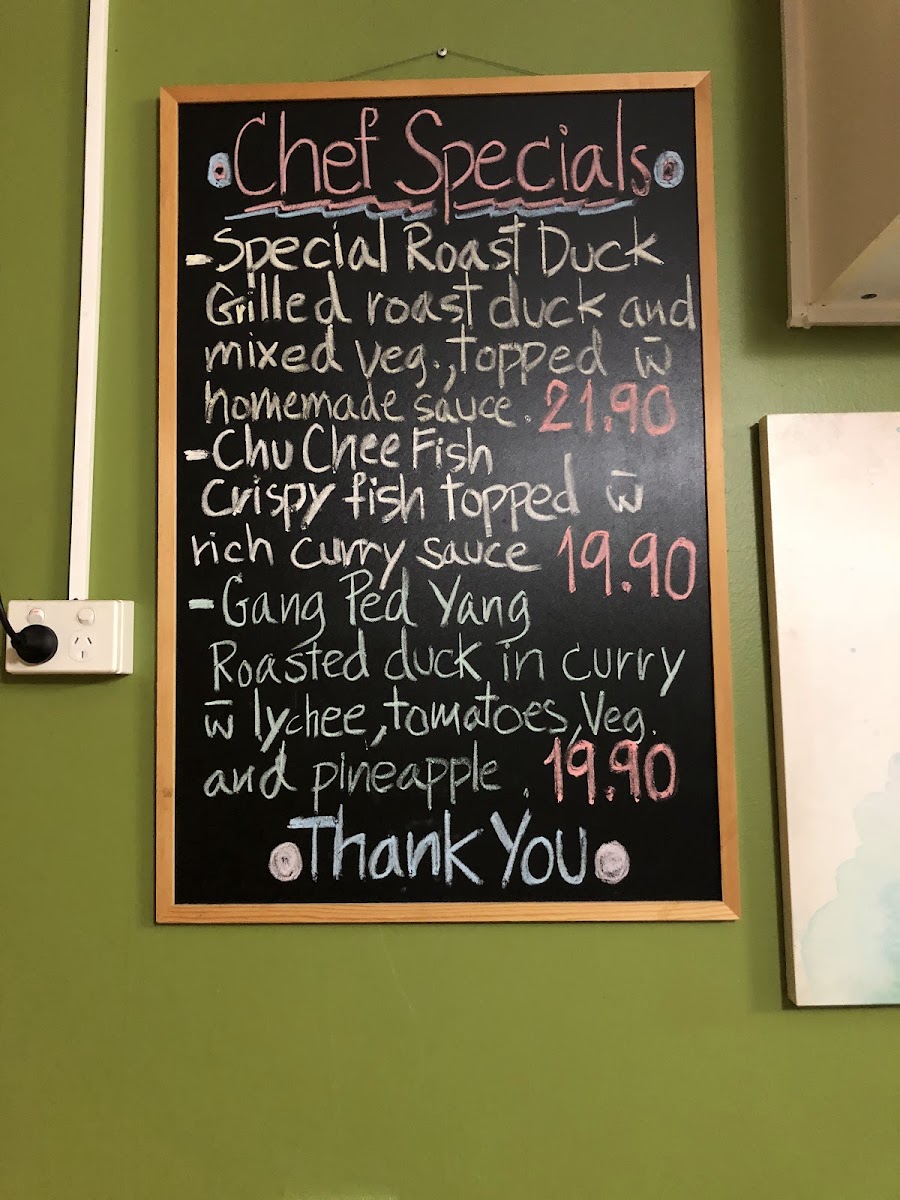 Chef Specials
- Special Roast Duck
Grilled roast duck and
mixed veg., topped w̄
homemade sauce. 21.90
- Chu Chee Fish
Crispy fish topped w̄
rich curry sauce 19.90
- Gang Ped Yang
Roasted duck in curry
w̄ lychee, tomatoes, Veg.
and pineapple. 19.90
Thank You